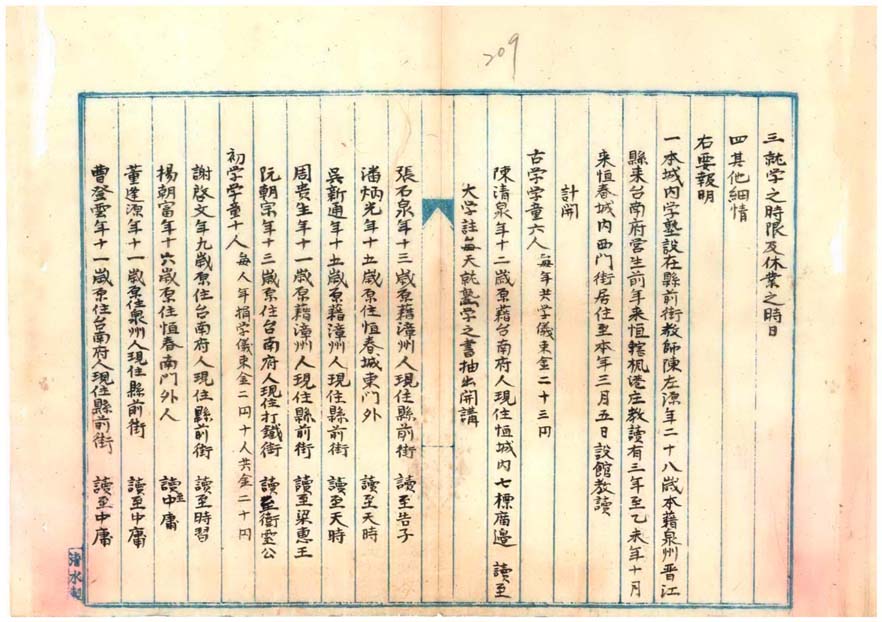 209
三就学之時限及休業之時日
四其他細情
右要報明
一本城内学塾設在縣前街教師陳左源年二十八歲本藉泉州晋江
縣來台南府宮生前年來恒轄楓港庄教讀有三年至乙未年十月
来恒春城内西門街居住至本年三月五日設館教讀
計開
古学学童六人每年共学儀束金二十三円
陳清泉年十二歲原藉台南府人現住恒城内七標廟邊 讀至
大学註每天就塾学之書抽出開講
張石泉年十三歲原藉漳州人現住縣前街 讀至告子
潘炳光年十五歲原住恒春城東門外 讀至天時
吳新通年十五歲原藉漳州人現住縣前街 讀至天時
周貴生年十一歲原藉漳州人現住縣前街 讀至梁惠王
阮朝宗年十三歲原住台南府人現住打鐵街 讀至衛灵公
初学学童十人每人年捐学儀束金二円十人共金二十円
謝啓文年九歲原住台南府人現住縣前街 讀至時習
楊朝富年十六歲原住恒春南門外人 讀至中庸
董逢源年十一歲原住泉州人現住縣前街 讀至中庸
曹登雲年十一歲原住台南府人現住縣前街 讀至中庸
清水製